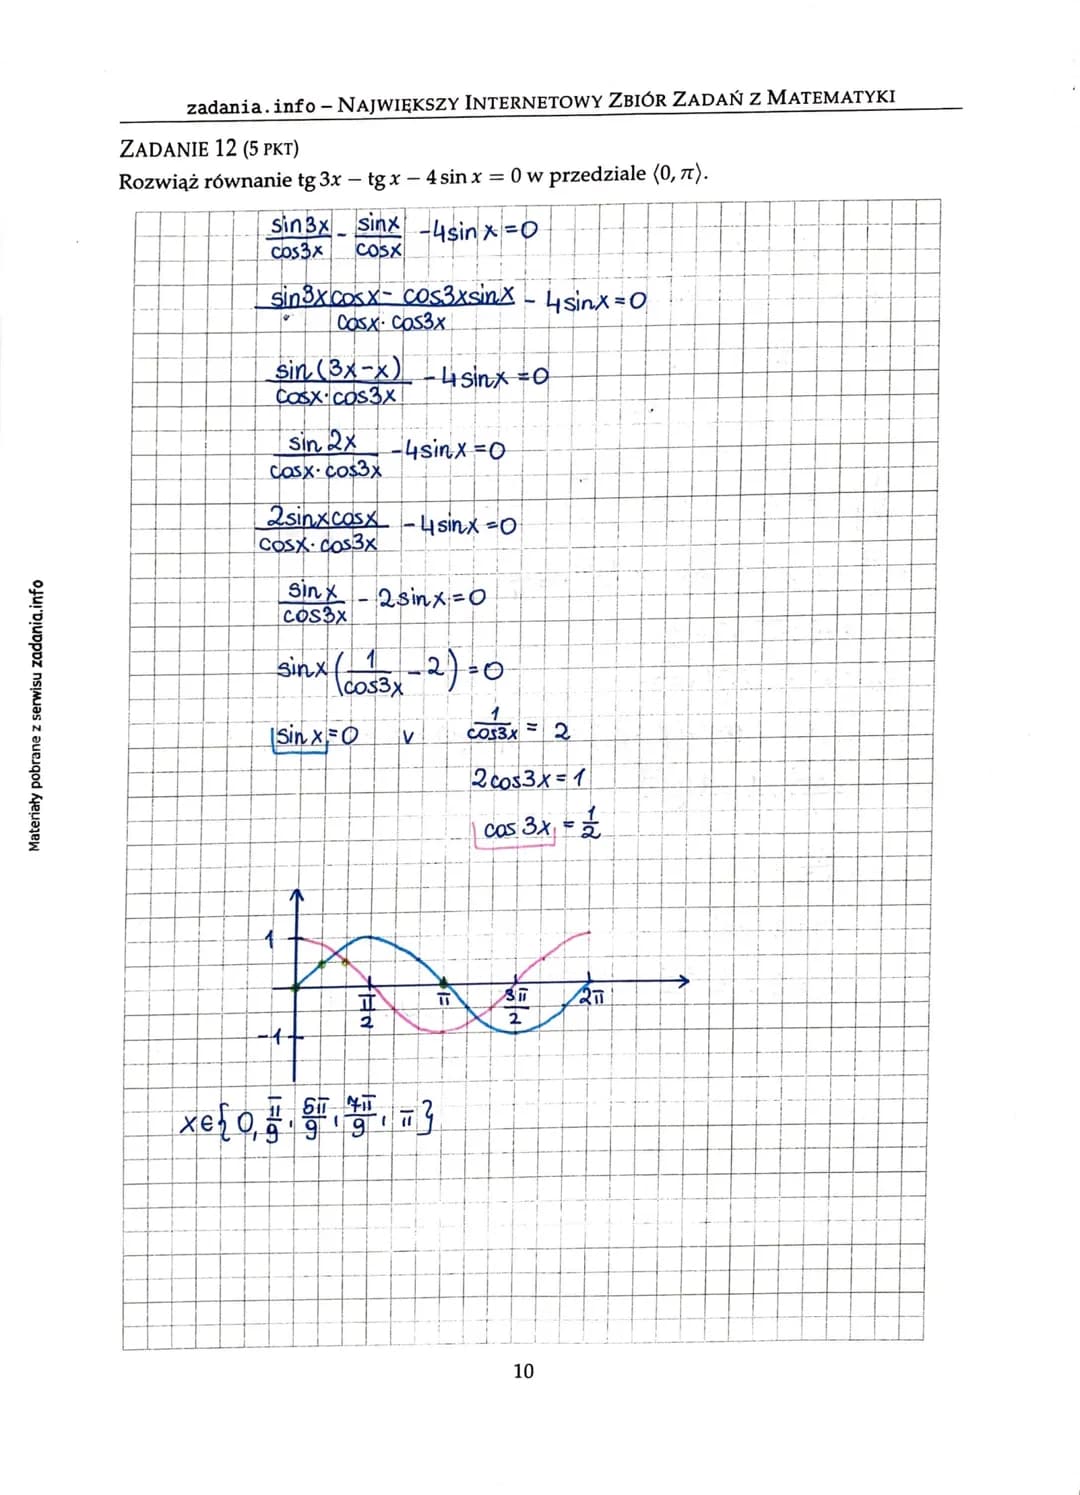 zadania.info – NAJWIĘKSZY INTERNETOWY ZBIÓR ZADAŃ Z MATEMATYKI
ZADANIE 12 (5 PKT)
Rozwiąż równanie tg 3x − tg x − 4 sin x = 0 w przedziale ⟨0, π⟩.
sin3x/cos3x - sinx/cosx - 4sinx = 0
(sin3xcosx - cos3xsinx)/(cosx·cos3x) - 4sinx = 0
sin(3x-x)/(cosx·cos3x) - 4sinx = 0
sin2x/(cosx·cos3x) - 4sinx = 0
2sinxcosx/(cosx·cos3x) - 4sinx = 0
sinx/cos3x - 2sinx = 0
sinx(1/cos3x - 2) = 0
sinx = 0 v 1/cos3x = 2
2cos3x = 1
cos3x = 1/2
1
π/2 π 3π/2 2π
-1
x∈{0, π/9, 5π/9, 7π/9, π}
10
Materiały pobrane z serwisu zadania.info